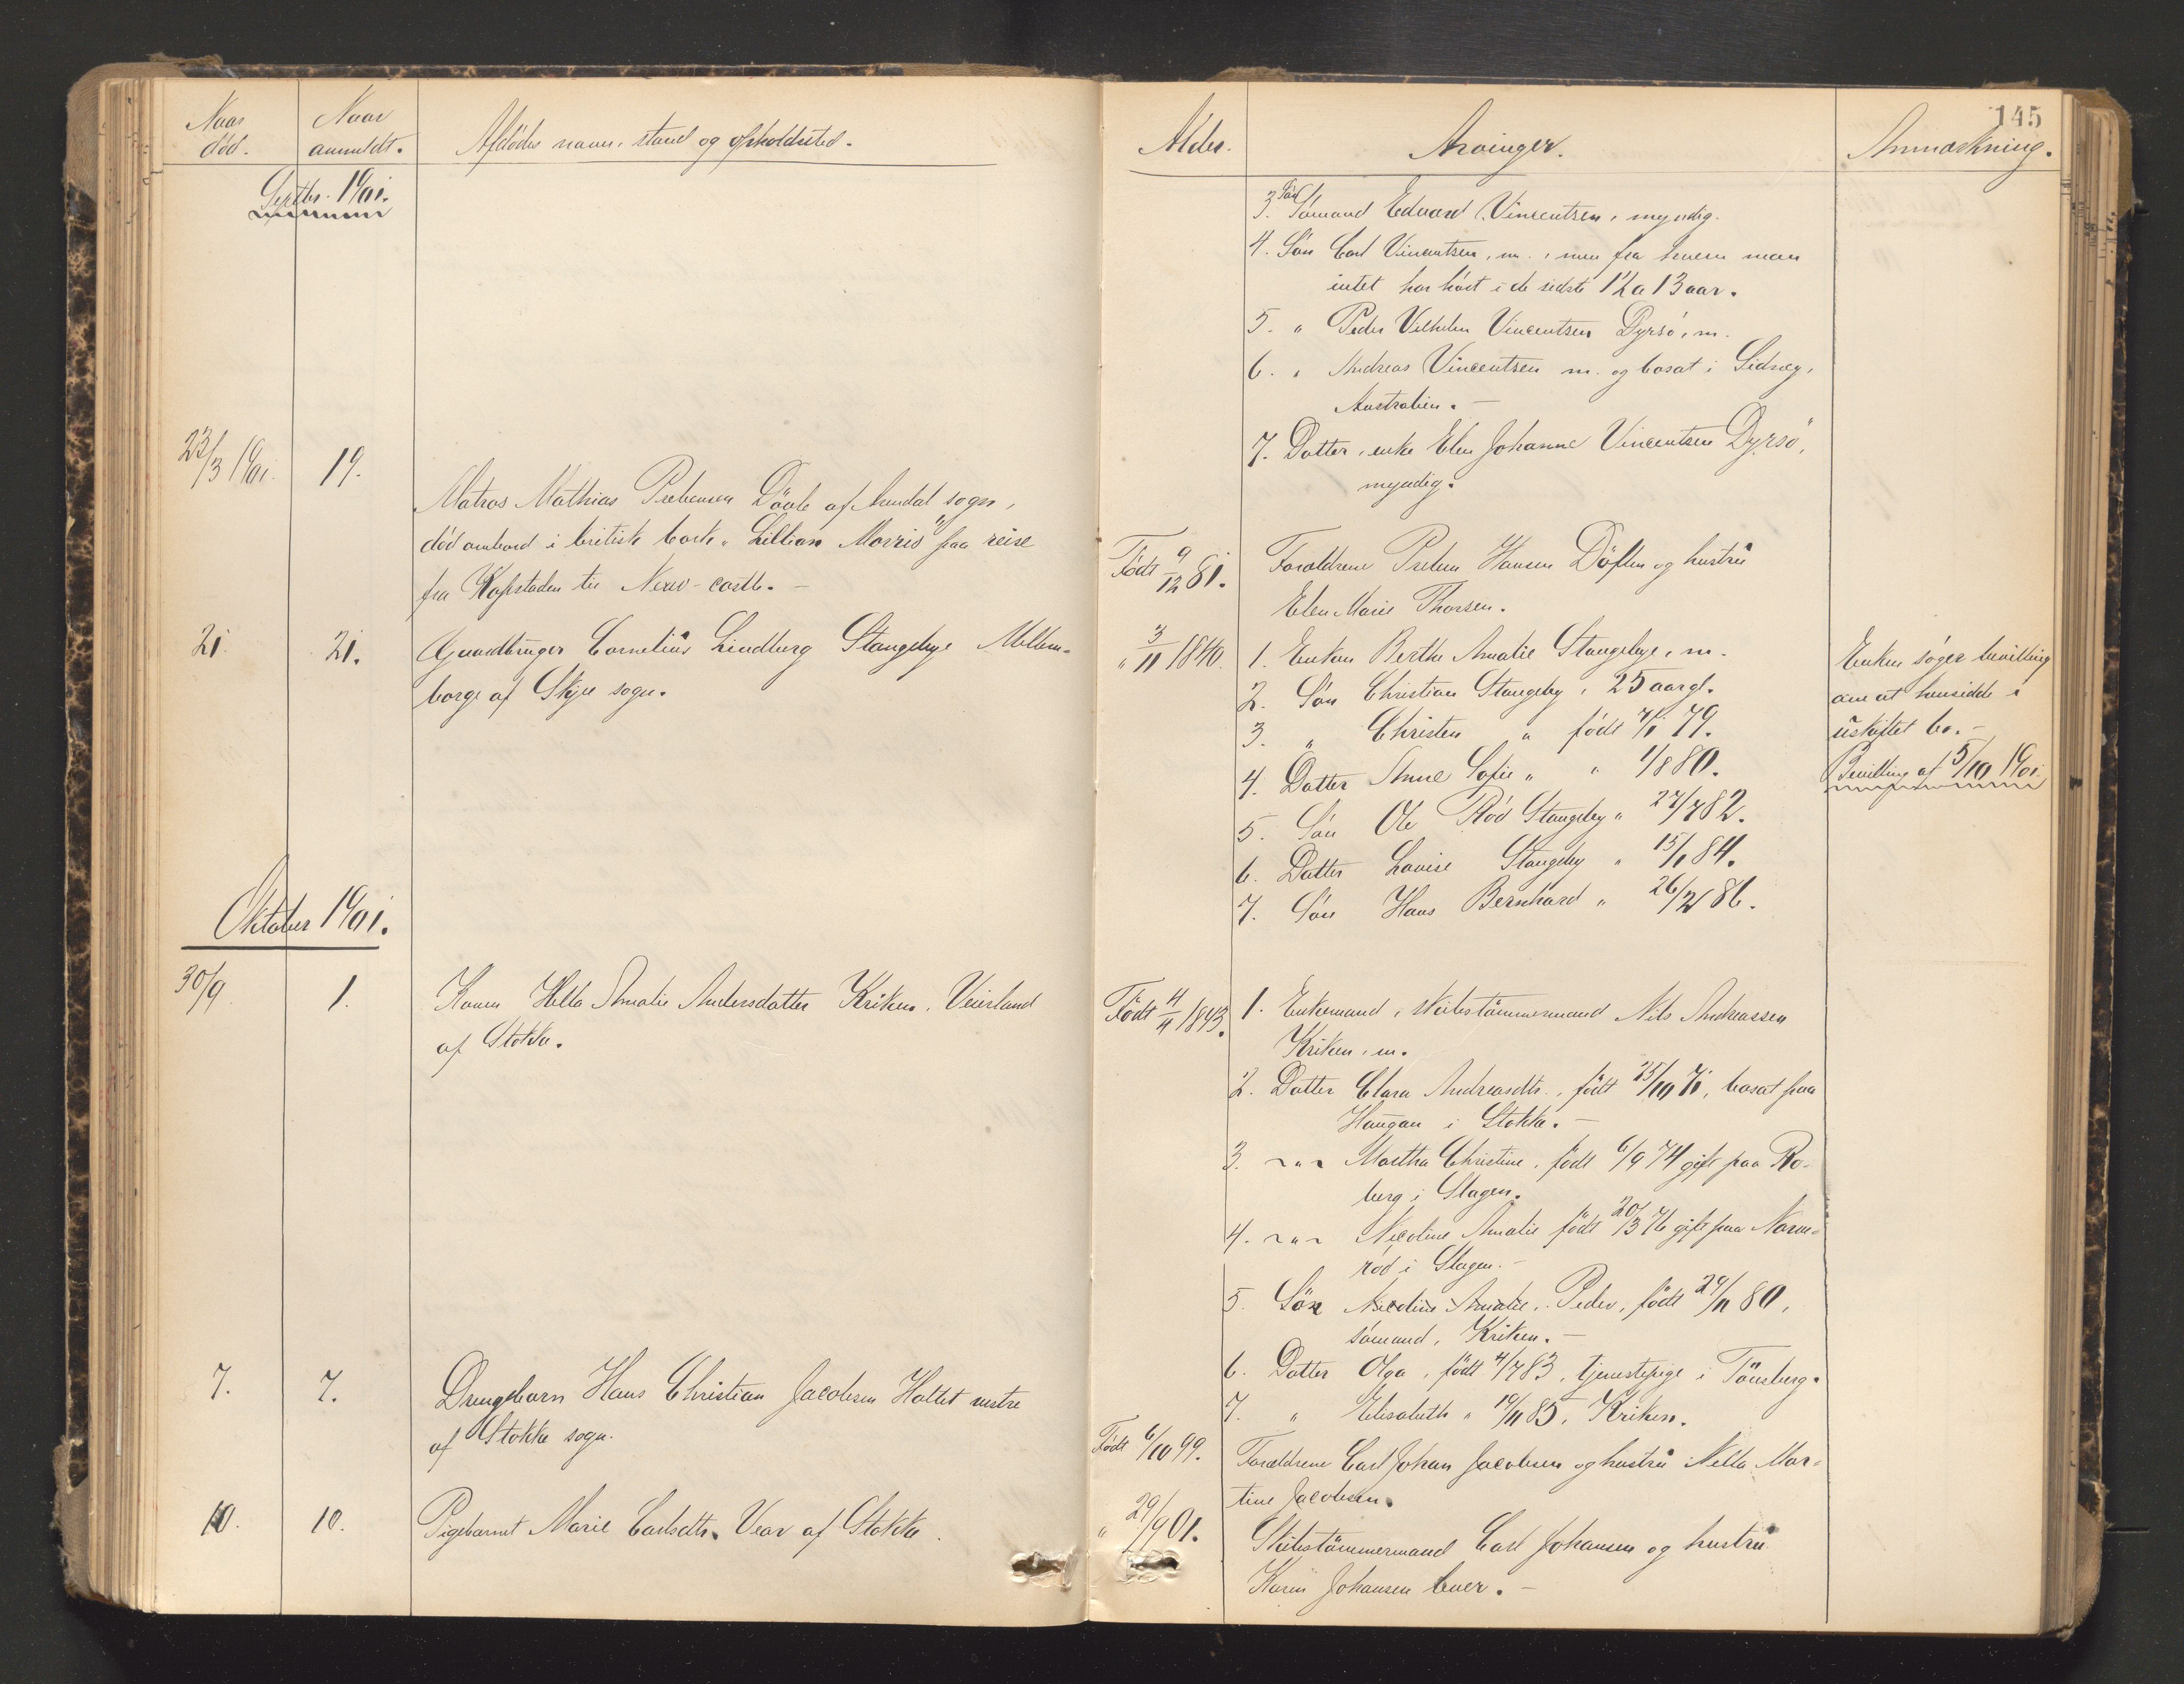 Naar død.
Naar anmeldt.
Afdødes navn, stand og opholdssted.
Septbr. 1901.
23/3 1901.
19.
Matros Mathias Prebensen Dövle af Arendal sogn,
död ombord i britisk bark "Lillian Morris" paa reise
fra Kapstaden til New-castle. -
21.
21.
Gaardbruger Cornelius Lindberg Stangebye Mellem-
borge af Skjee sogn.
Oktober 1901.
30/9
1.
Konen Hella Amalie Andersdatter Kriken, Veierland
af Stokke.
7.
7.
Drengebarn Hans Christian Jacobsen Holtet vestre
af Stokke sogn.
10.
10.
Pigebarnet Marie Carlsdtr. Vear af Stokke.
145
Alder.
Arvinger.
Anmærkning.
3. Sön Sömand Edvard Vincentsen, myndig.
4. Sön Carl Vincentsen, m., men fra hvem man
intet har hört i de sidste 12 a 13 aar.
5. " Peder Vilhelm Vincentsen Dyrsö, m.
6. " Andreas Vincentsen m. og bosat i Sidney,
Australien. -
7. Datter, enke Elen Johanne Vincentsen Dyrsö,
myndig.
Födt 9/12 81.
Forældrene Preben Hansen Döflen og hustru
Elen Marie Thorsen.
" 3/11 1840.
1. Enken Berthe Amalie Stangebye, m.
2. Sön Christian Stangeby, 25 aar gl.
3. " Christen " födt 7/1 79.
4. Datter Anne Sofie " " 1/8 80.
5. Sön Ole Röd Stangeby " 27/7 82.
6. Datter Lovise Stangeby " 15/1 84.
7. Sön Hans Bernhard " 26/2 86.
Enken söger bevilling
om at hensidde i
uskiftet bo. -
Bevilling af 5/10 1901.
Födt 4/4 1843.
1. Enkemand, skibstömmermand Nils Andreassen
Kriken, m.
2. Datter Clara Andreasdtr., födt 25/10 71, bosat paa
Haugan i Stokke. -
3. - " - Martha Christine, födt 6/9 74 gift paa Ro-
berg i Slagen.
4. - " - Nicoline Amalie födt 20/3 76 gift paa Narve-
röd i Slagen. -
5. Sön Nicoline Amalie, Peder, födt 29/11 80,
sömand, Kriken. -
6. Datter Olga, födt 4/7 83, tjenestepige i Tönsberg.
7. " Elisabeth " 19/11 85, Kriken.
Födt 6/10 99.
Forældrene Carl Johan Jacobsen og hustru Nella Mar-
tine Jacobsen.
" 29/9 01.
Skibstömmermand Carl Johansen og hustru
Karen Johansen Vear. -